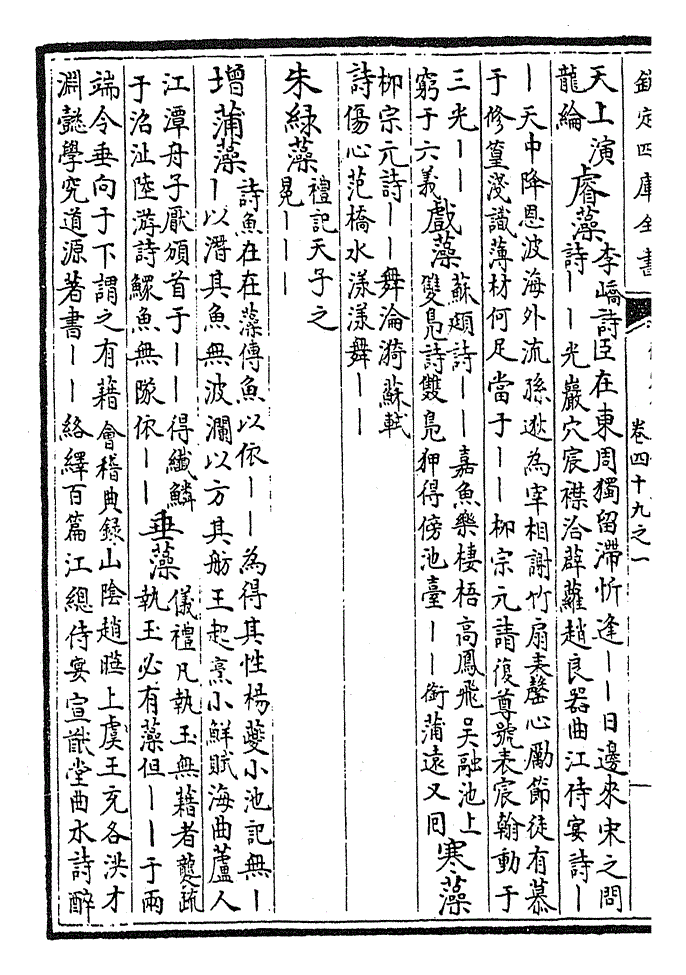 欽定四庫全書
卷四十九之一
天上演
龍綸
睿藻
李嶠詩臣在東周獨留滯忻逢丨丨日邊來宋之問
詩丨丨光巖穴宸襟洽薜蘿趙良器曲江侍宴詩丨
丨天中降恩波海外流孫逖為宰相謝竹扇表罄心勵節徒有慕
于修篁淺識薄材何足當于丨丨柳宗元請復尊號表宸翰動于
三光丨丨
窮于六義
戲藻
蘇頲詩丨丨嘉魚樂棲梧高鳳飛吳融池上
雙鳧詩雙鳧狎得傍池臺丨丨銜蒲遠又回
寒藻
柳宗元詩丨丨舞淪漪蘇軾
詩傷心范橋水漾漾舞丨丨
朱綠藻
禮記天子之
冕丨丨丨
增蒲藻
詩魚在在藻傳魚以依丨丨為得其性楊夔小池記無丨
丨以潛其魚無波瀾以方其舫王起烹小鮮賦海曲蘆人
江潭舟子厭頒首于丨丨得纖鱗
于沼沚陸游詩鰥魚無隊依丨丨
垂藻
儀禮凡執玉無藉者襲疏
執玉必有藻但丨丨于兩
端令垂向于下謂之有藉會稽典錄山陰趙曄上虞王充各洪才
淵懿學究道源著書丨丨絡繹百篇江總侍宴宣猷堂曲水詩醉